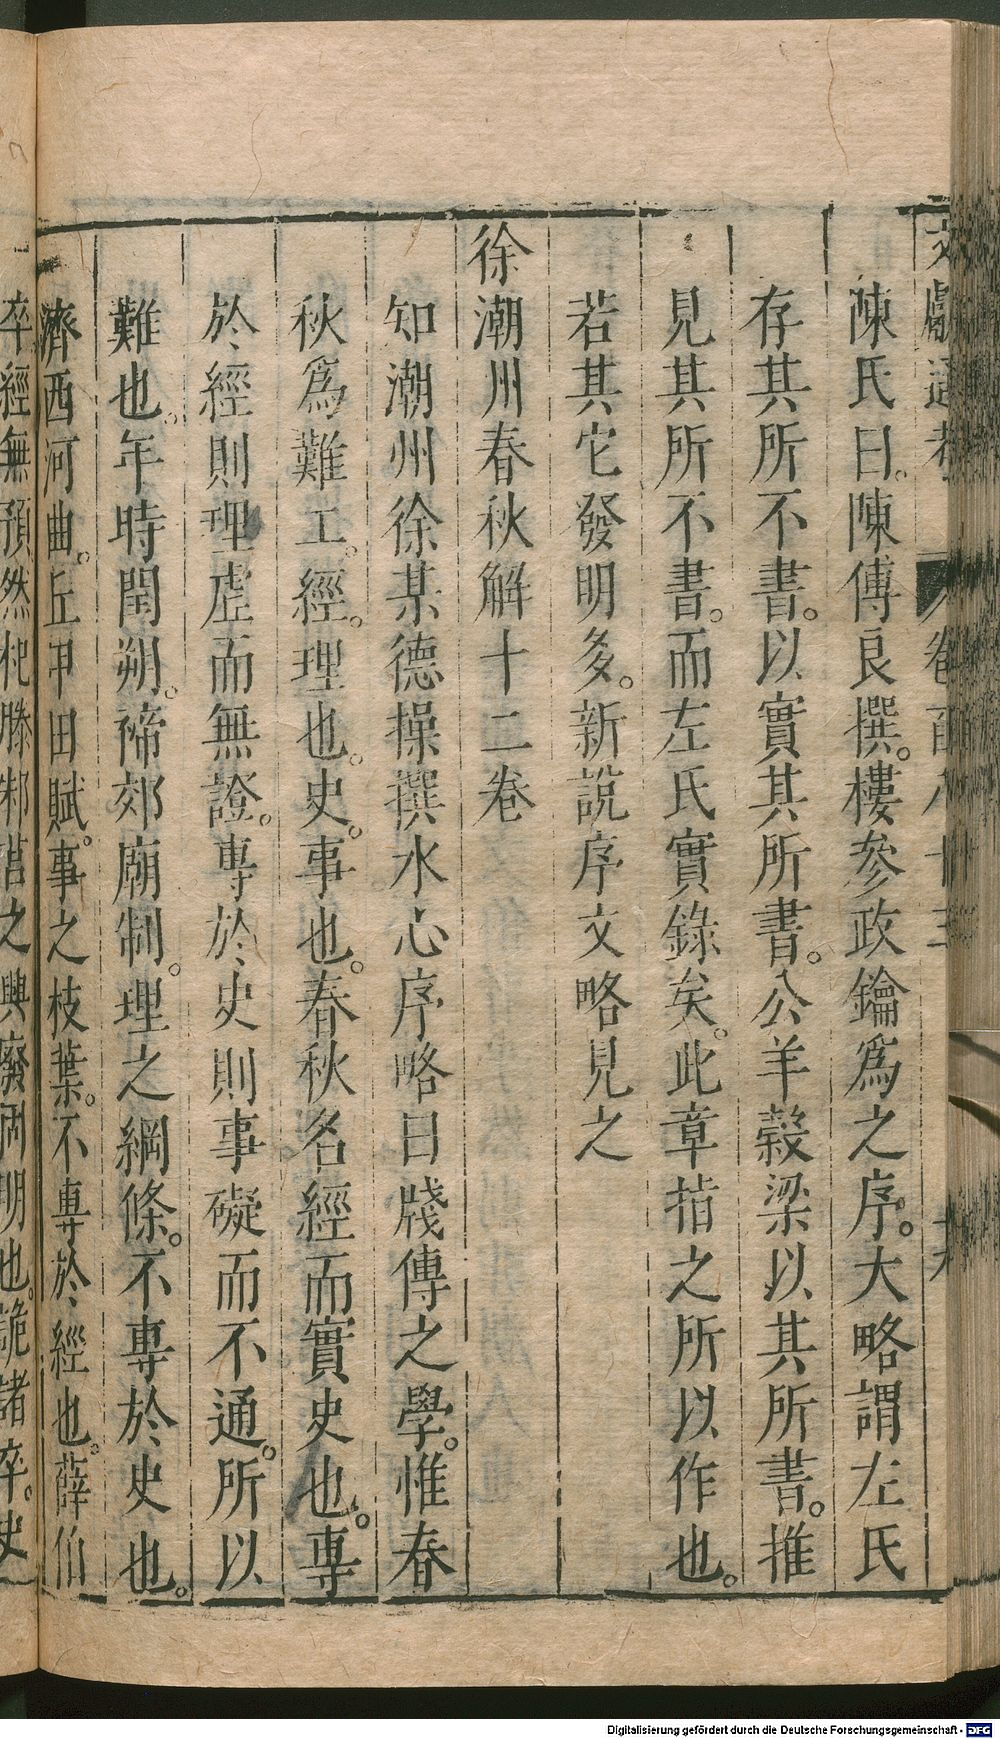 文獻通考 卷百八十三 十六
陳氏曰。陳傅良撰。樓參政鑰爲之序。大略謂左氏
存其所不書。以實其所書。公羊穀梁以其所書。推
見其所不書。而左氏實錄矣。此章指之所以作也。
若其它發明多。新說序文略見之
徐潮州春秋解十二卷
知潮州徐某德操撰水心序略曰牋傳之學。惟春
秋爲難工。經。理也。史。事也。春秋名經而實史也。專
於經則理虛而無證。專於史則事礙而不通。所以
難也。年時閏朔。禘郊廟制。理之綱條。不專於史也。
濟西河曲。丘甲田賦。事之枝葉。不專於經也。薛伯
卒經無預然杞滕邾莒之興廢固明也。詭諸卒。史
Digitalisierung gefördert durch die Deutsche Forschungsgemeinschaft - DFG